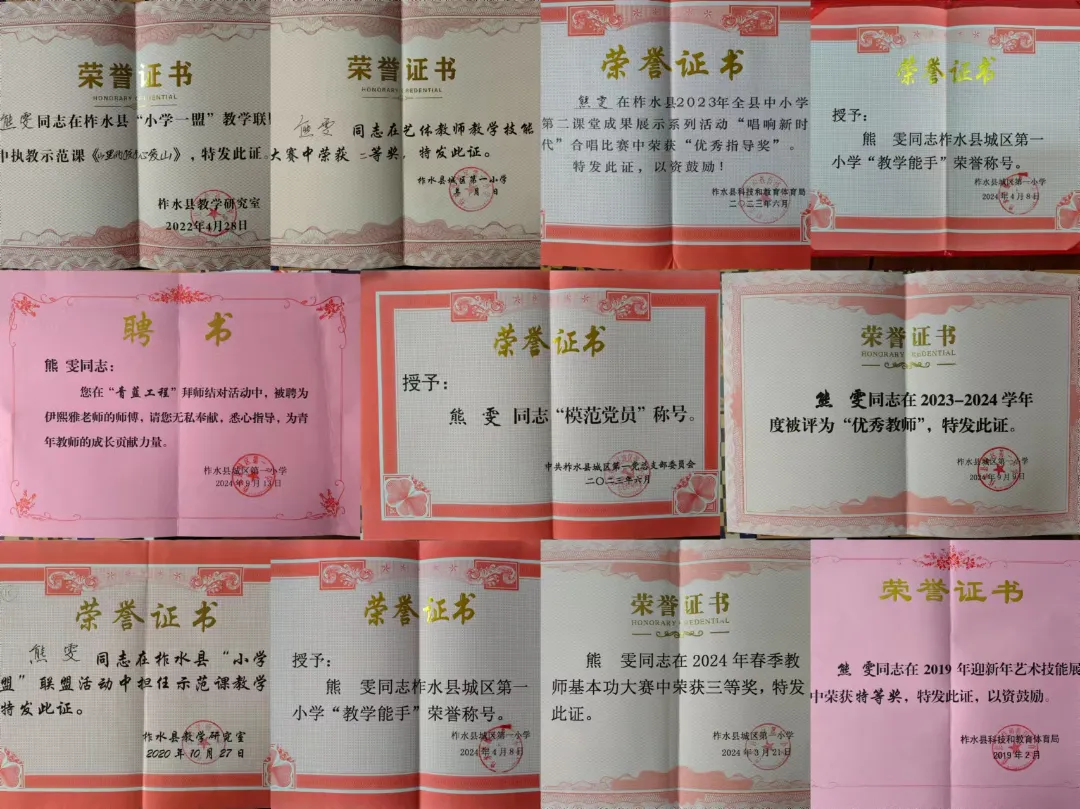 荣誉证书
HONORARY CREDENTIAL
熊雯同志在柞水县“小学一盟”教学联
中执教示范课《山里的孩子心爱山》，特发此证。
柞水县教学研究室
2022年4月28日
荣誉证书
HONORARY CREDENTIAL
熊雯 同志在艺体教师教学技能
大赛中荣获 二等奖，特发此证。
柞水县城区第一小学
年 月 日
荣誉证书
熊雯在柞水县2023年全县中小学
第二课堂成果展示系列活动“唱响新时
代”合唱比赛中荣获“优秀指导奖”。
特发此证，以资鼓励！
柞水县科技和教育体育局
二〇二三年六月
荣誉证书
授予：
熊 雯同志柞水县城区第一
小学“教学能手”荣誉称号。
柞水县城区第一小学
2024年4月8日
聘 书
熊 雯同志：
您在“青蓝工程”拜师结对活动中，被聘为
伊熙雅老师的师傅，请您无私奉献，悉心指导，为青
年教师的成长贡献力量。
柞水县城区第一小学
2024年9月13日
荣誉证书
授予：
熊 雯 同志“模范党员”称号。
中共柞水县城区第一党总支部委员会
二〇二三年六月
荣誉证书
HONORARY CREDENTIAL
熊 雯同志在2023-2024学年
度被评为“优秀教师”，特发此证。
柞水县城区第一小学
2024年9月9日
荣誉证书
熊雯 同志在柞水县“小学
盟”联盟活动中担任示范课教学
特发此证。
柞水县教学研究室
2020年10月27日
荣誉证书
授予：
熊 雯同志柞水县城区第一
小学“教学能手”荣誉称号。
柞水县城区第一小学
2024年4月8日
荣誉证书
HONORARY CREDENTIAL
熊 雯同志在2024年春季教
师基本功大赛中荣获三等奖，特发
此证。
柞水县城区第一小学
2024年3月21日
荣誉证书
熊 雯同志在2019年迎新年艺术技能展
中荣获特等奖，特发此证，以资鼓励。
柞水县科技和教育体育局
2019年2月